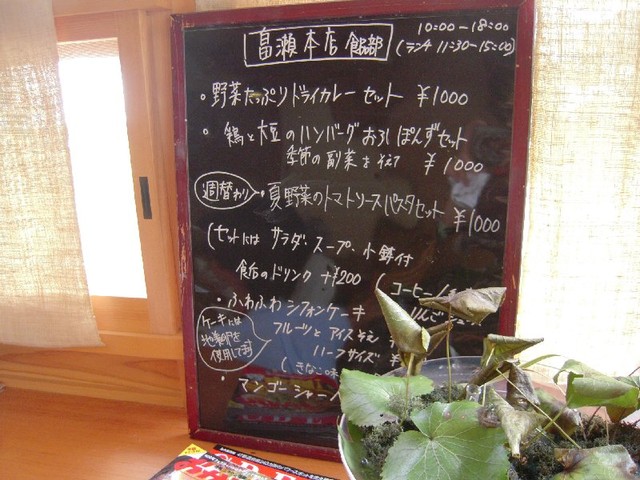 10:00-18:00
富瀬本店 飯部
(ランチ 11:30-15:00)
・野菜たっぷりドライカレーセット ¥1000
・鶏と大豆のハンバーグおろしぽんずセット
季節の副菜をそえて ¥1000
週替わり ・夏野菜のトマトソースパスタセット ¥1000
(セットには サラダ・スープ・小鉢付
食后のドリンク +¥200 (コーヒー/
りんご
・ふわふわシフォンケーキ
フルーツとアイスそえ
ハーフサイズ ¥
(きなこ味
ケーキには
地養卵を
使用してます
・マンゴーシャー